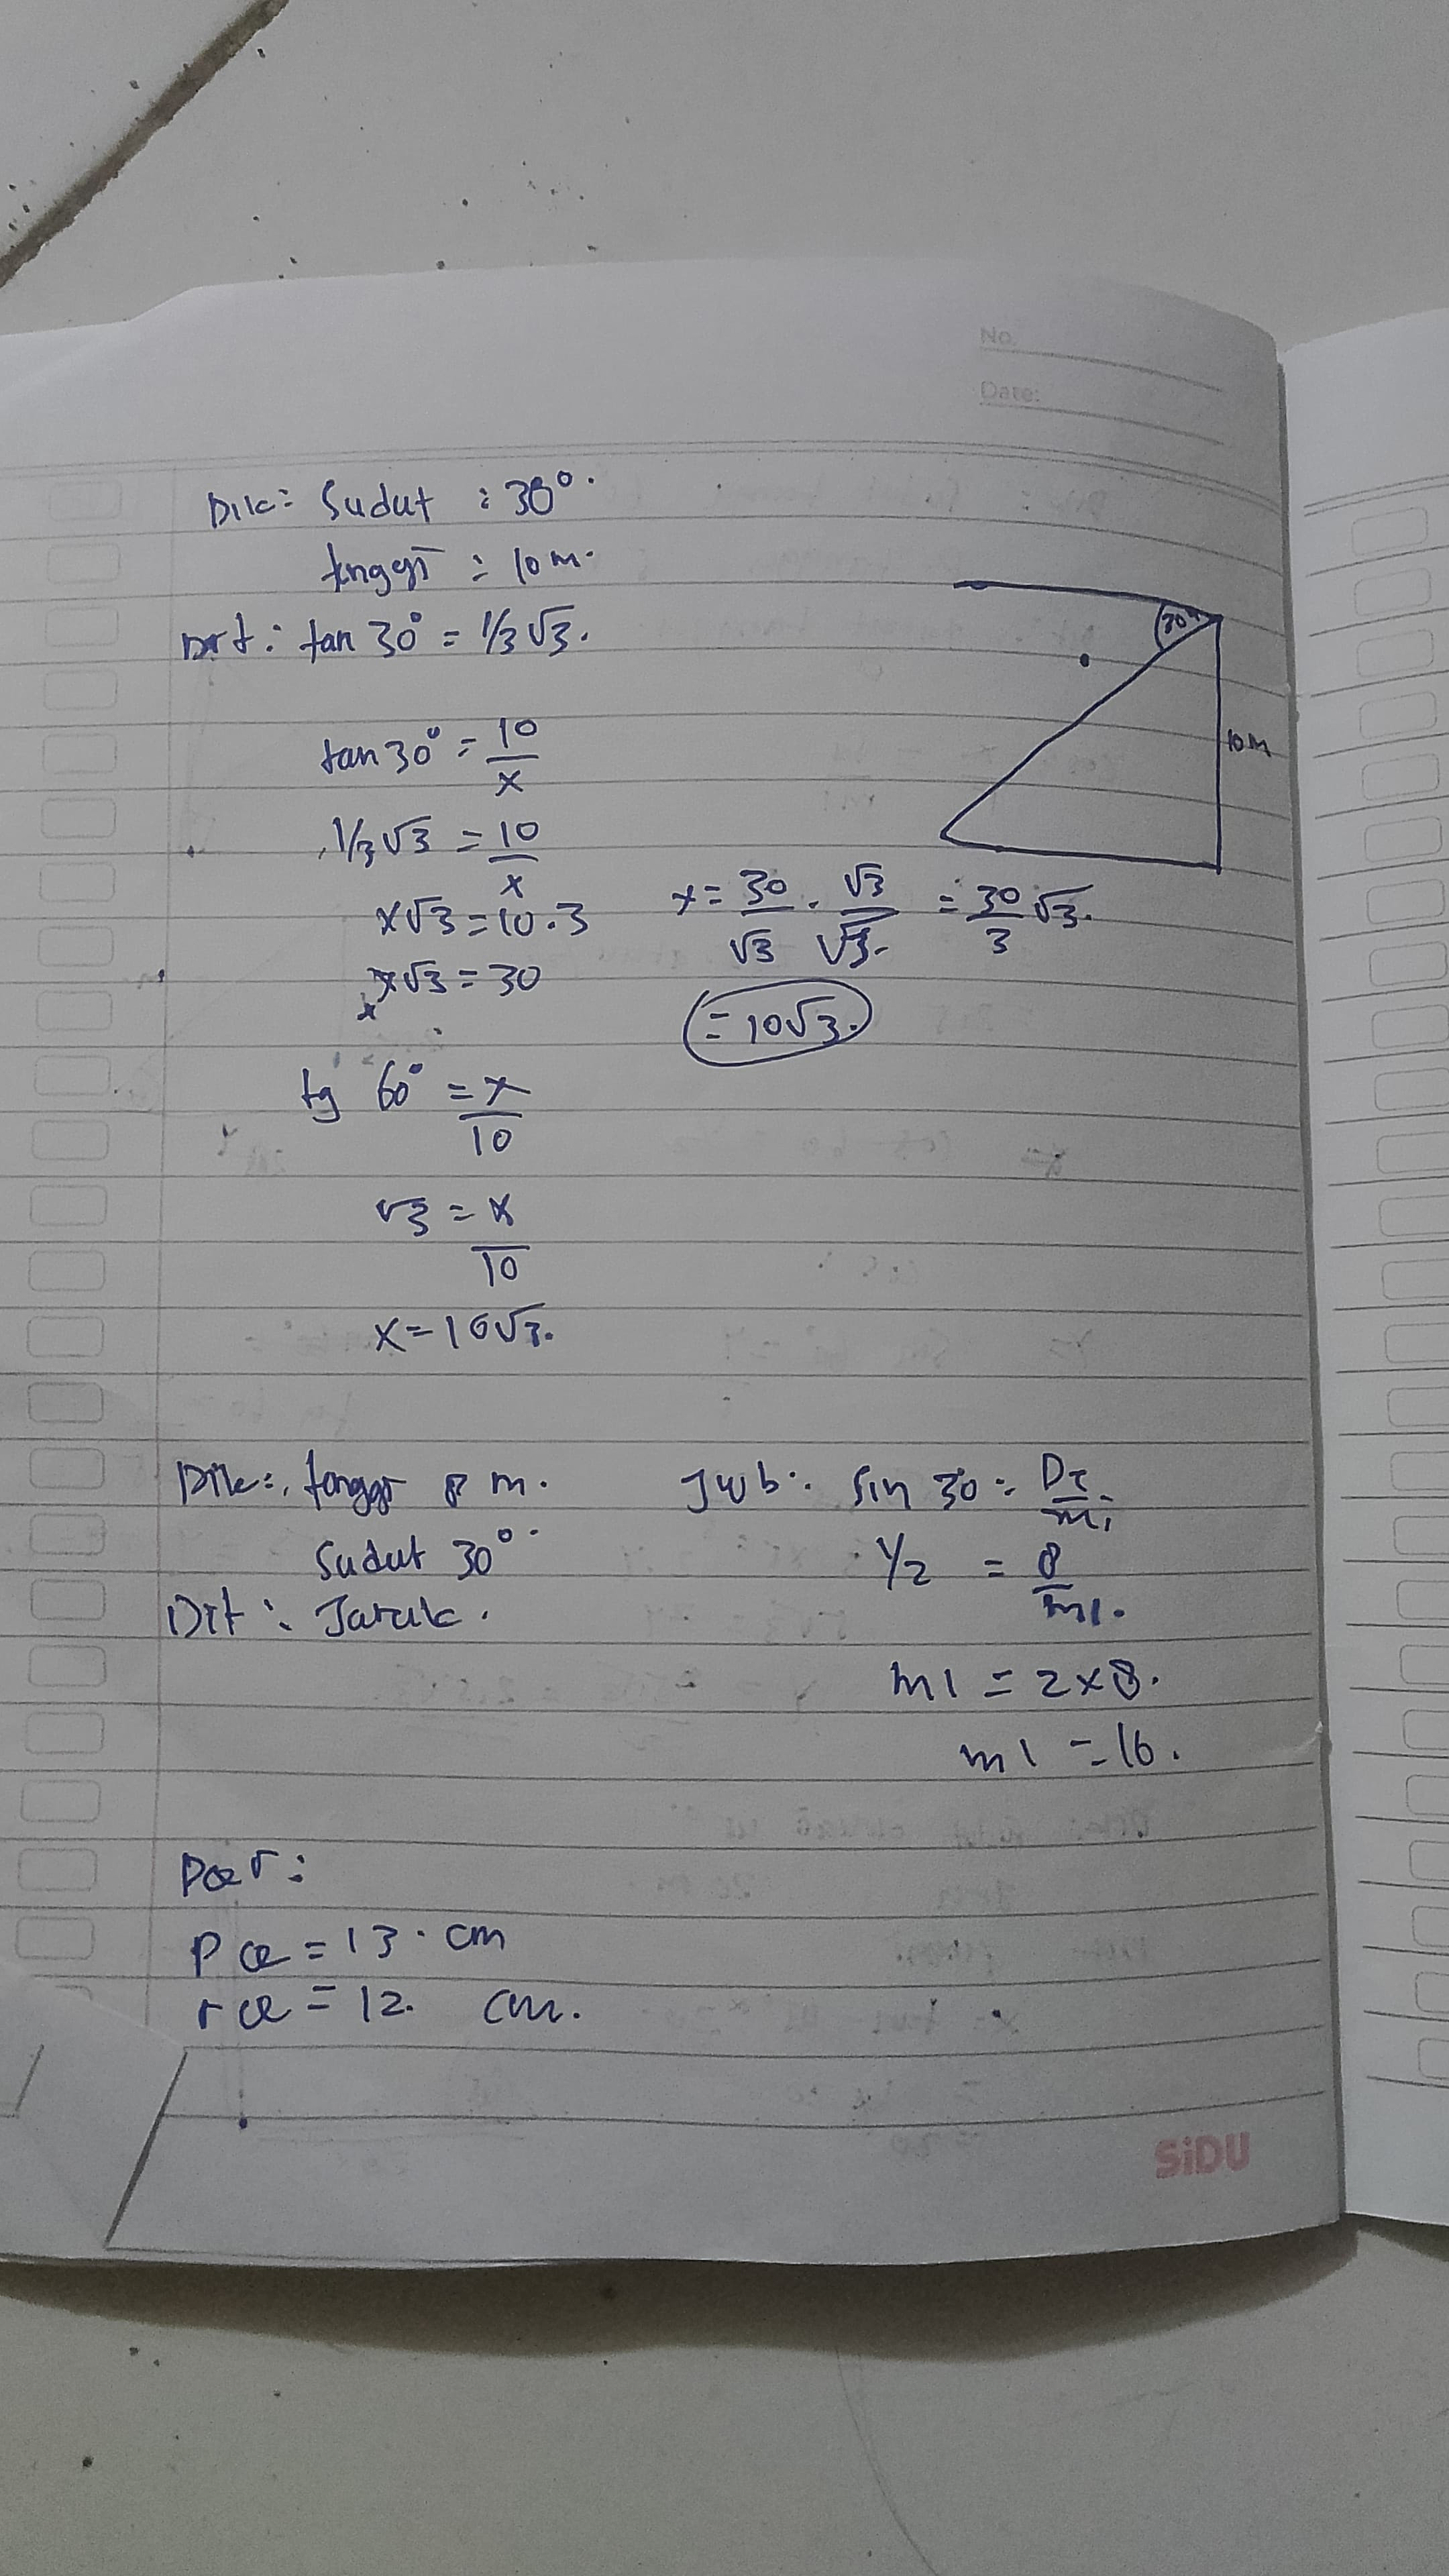 No.
Date:
Dik= Sudut : 30°.
tinggi = 10 m.
Dit: tan 30° = 1/3 √3.
30°
10 m
tan 30° = 10/x
1/3 √3 = 10/x
x√3 = 10.3
x√3 = 30
x
x = 30/√3 . √3/√3. = 30/3 √3.
= 10√3.
tg 60° = x/10
√3 = x/10
x = 10√3.
Dik=. tinggi 8 m.
Sudut 30°.
Dit : Jarak.
Jwb. sin 30 = De/mi
1/2 = 8/mi.
mi = 2x8.
mi = 16.
P = 13. cm
r = 12. cm.
SiDU